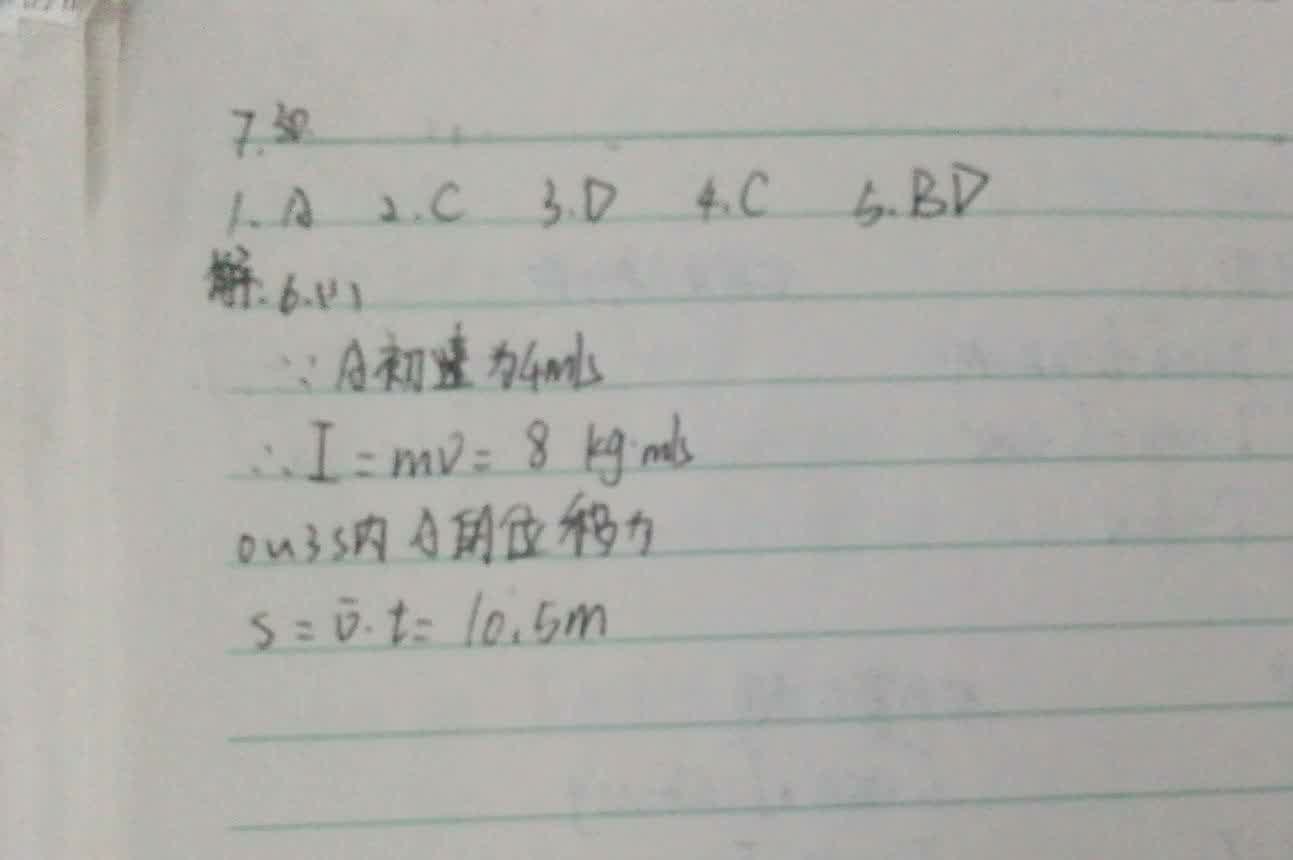 7.30
1. A 2. C 3. D 4. C 5. BD
解. 6.(1)
∵ A初速为4m/s
∴ I = mv = 8 kg·m/s
0~3s内 A的位移为
s = v̄·t = 10.5m